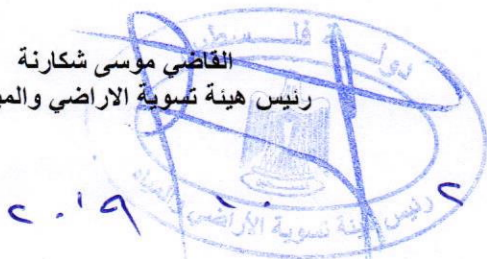 القاضي موسى شكارنة
رئيس هيئة تسوية الاراضي والمي
دولة فلسطين
رئيس هيئة تسوية الأراضي والمياه
٢٠١٩